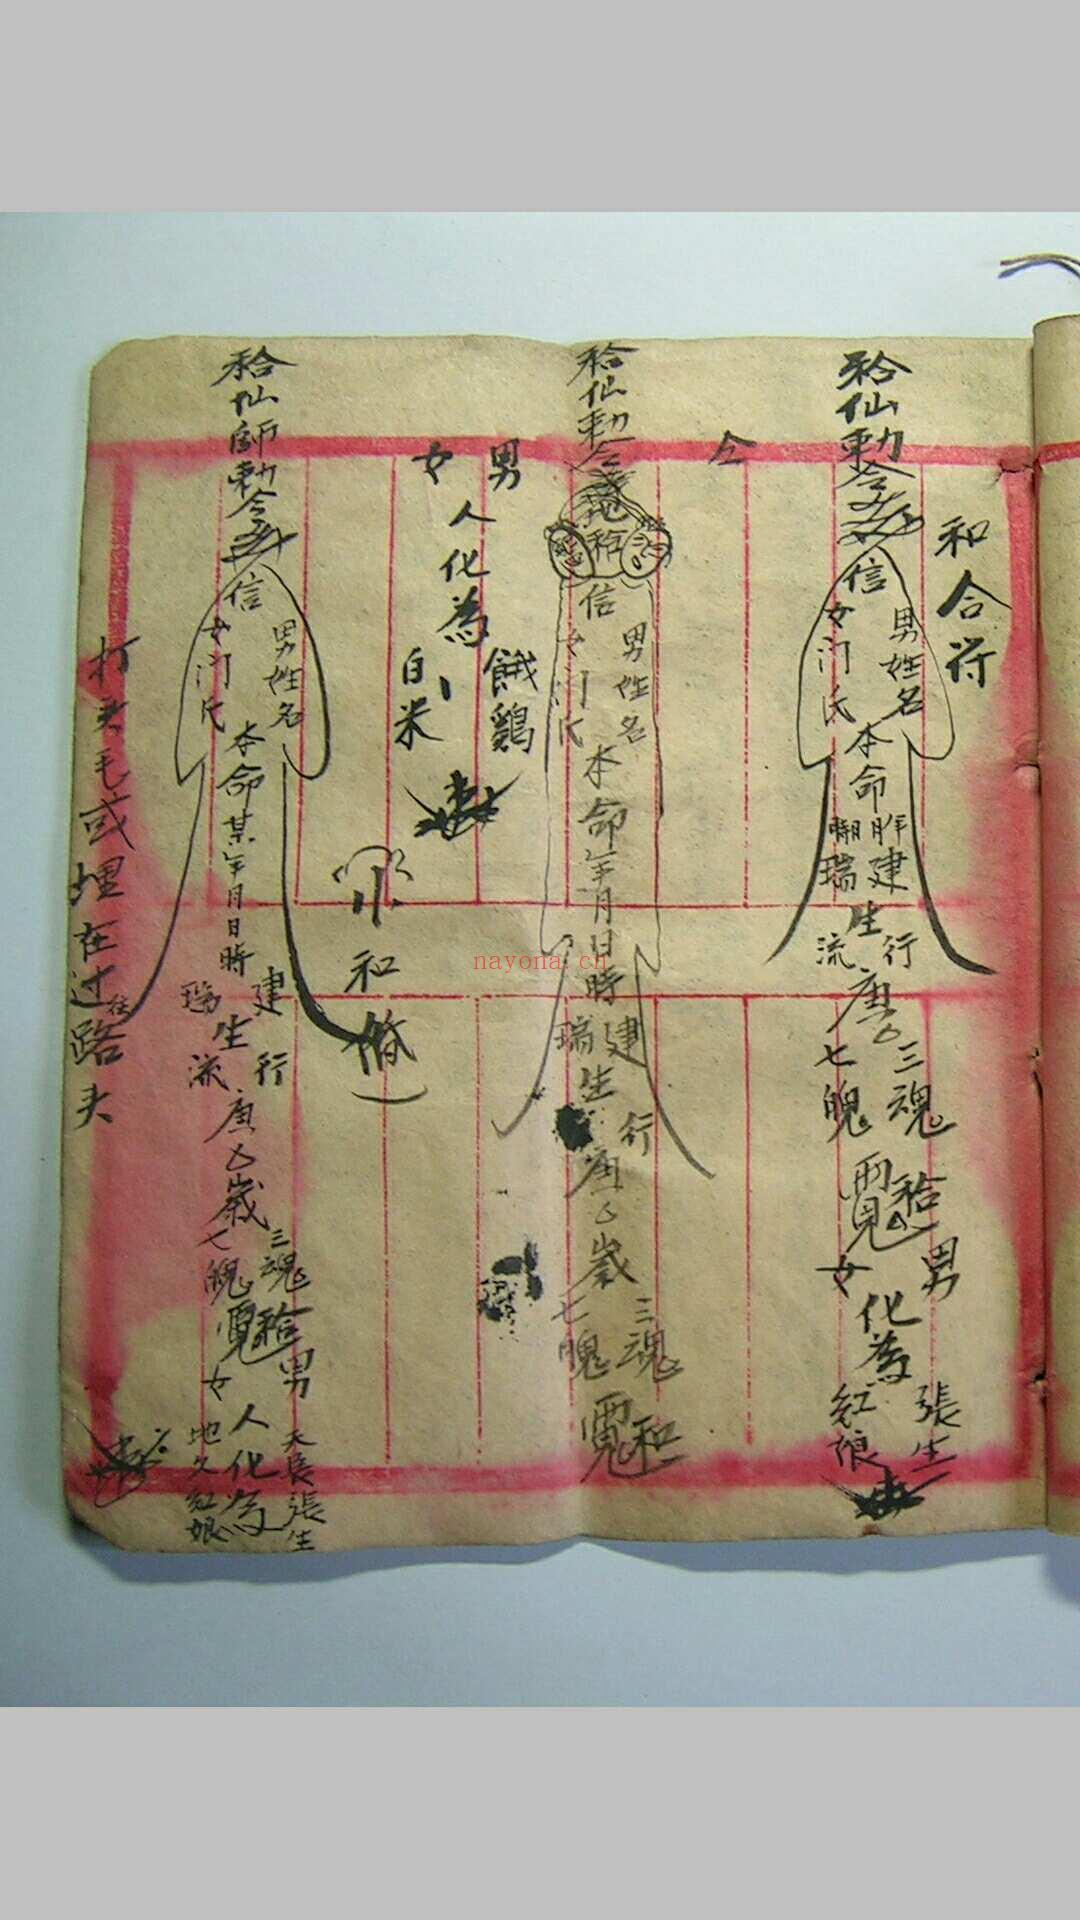 和合符
仙勅令
信
男姓名
女门氏
本命
建生行
瑞生流
庚
三魂
七魄
男
女
化為
張生
紅娘
仝
仙勅令
信
男姓名
女门氏
本命年月日時
建生行
瑞
庚
歲
三魂
七魄
和
男
女
人化為
餓鷄
白米
和
仙師勅令
信
男姓名
女门氏
本命某年月日時
建生行
瑞生流
庚
歲
三魂
七魄
男
女
人化為
天長張生
地久紅娘
打
毛或埋在过往路头
nayona.cn